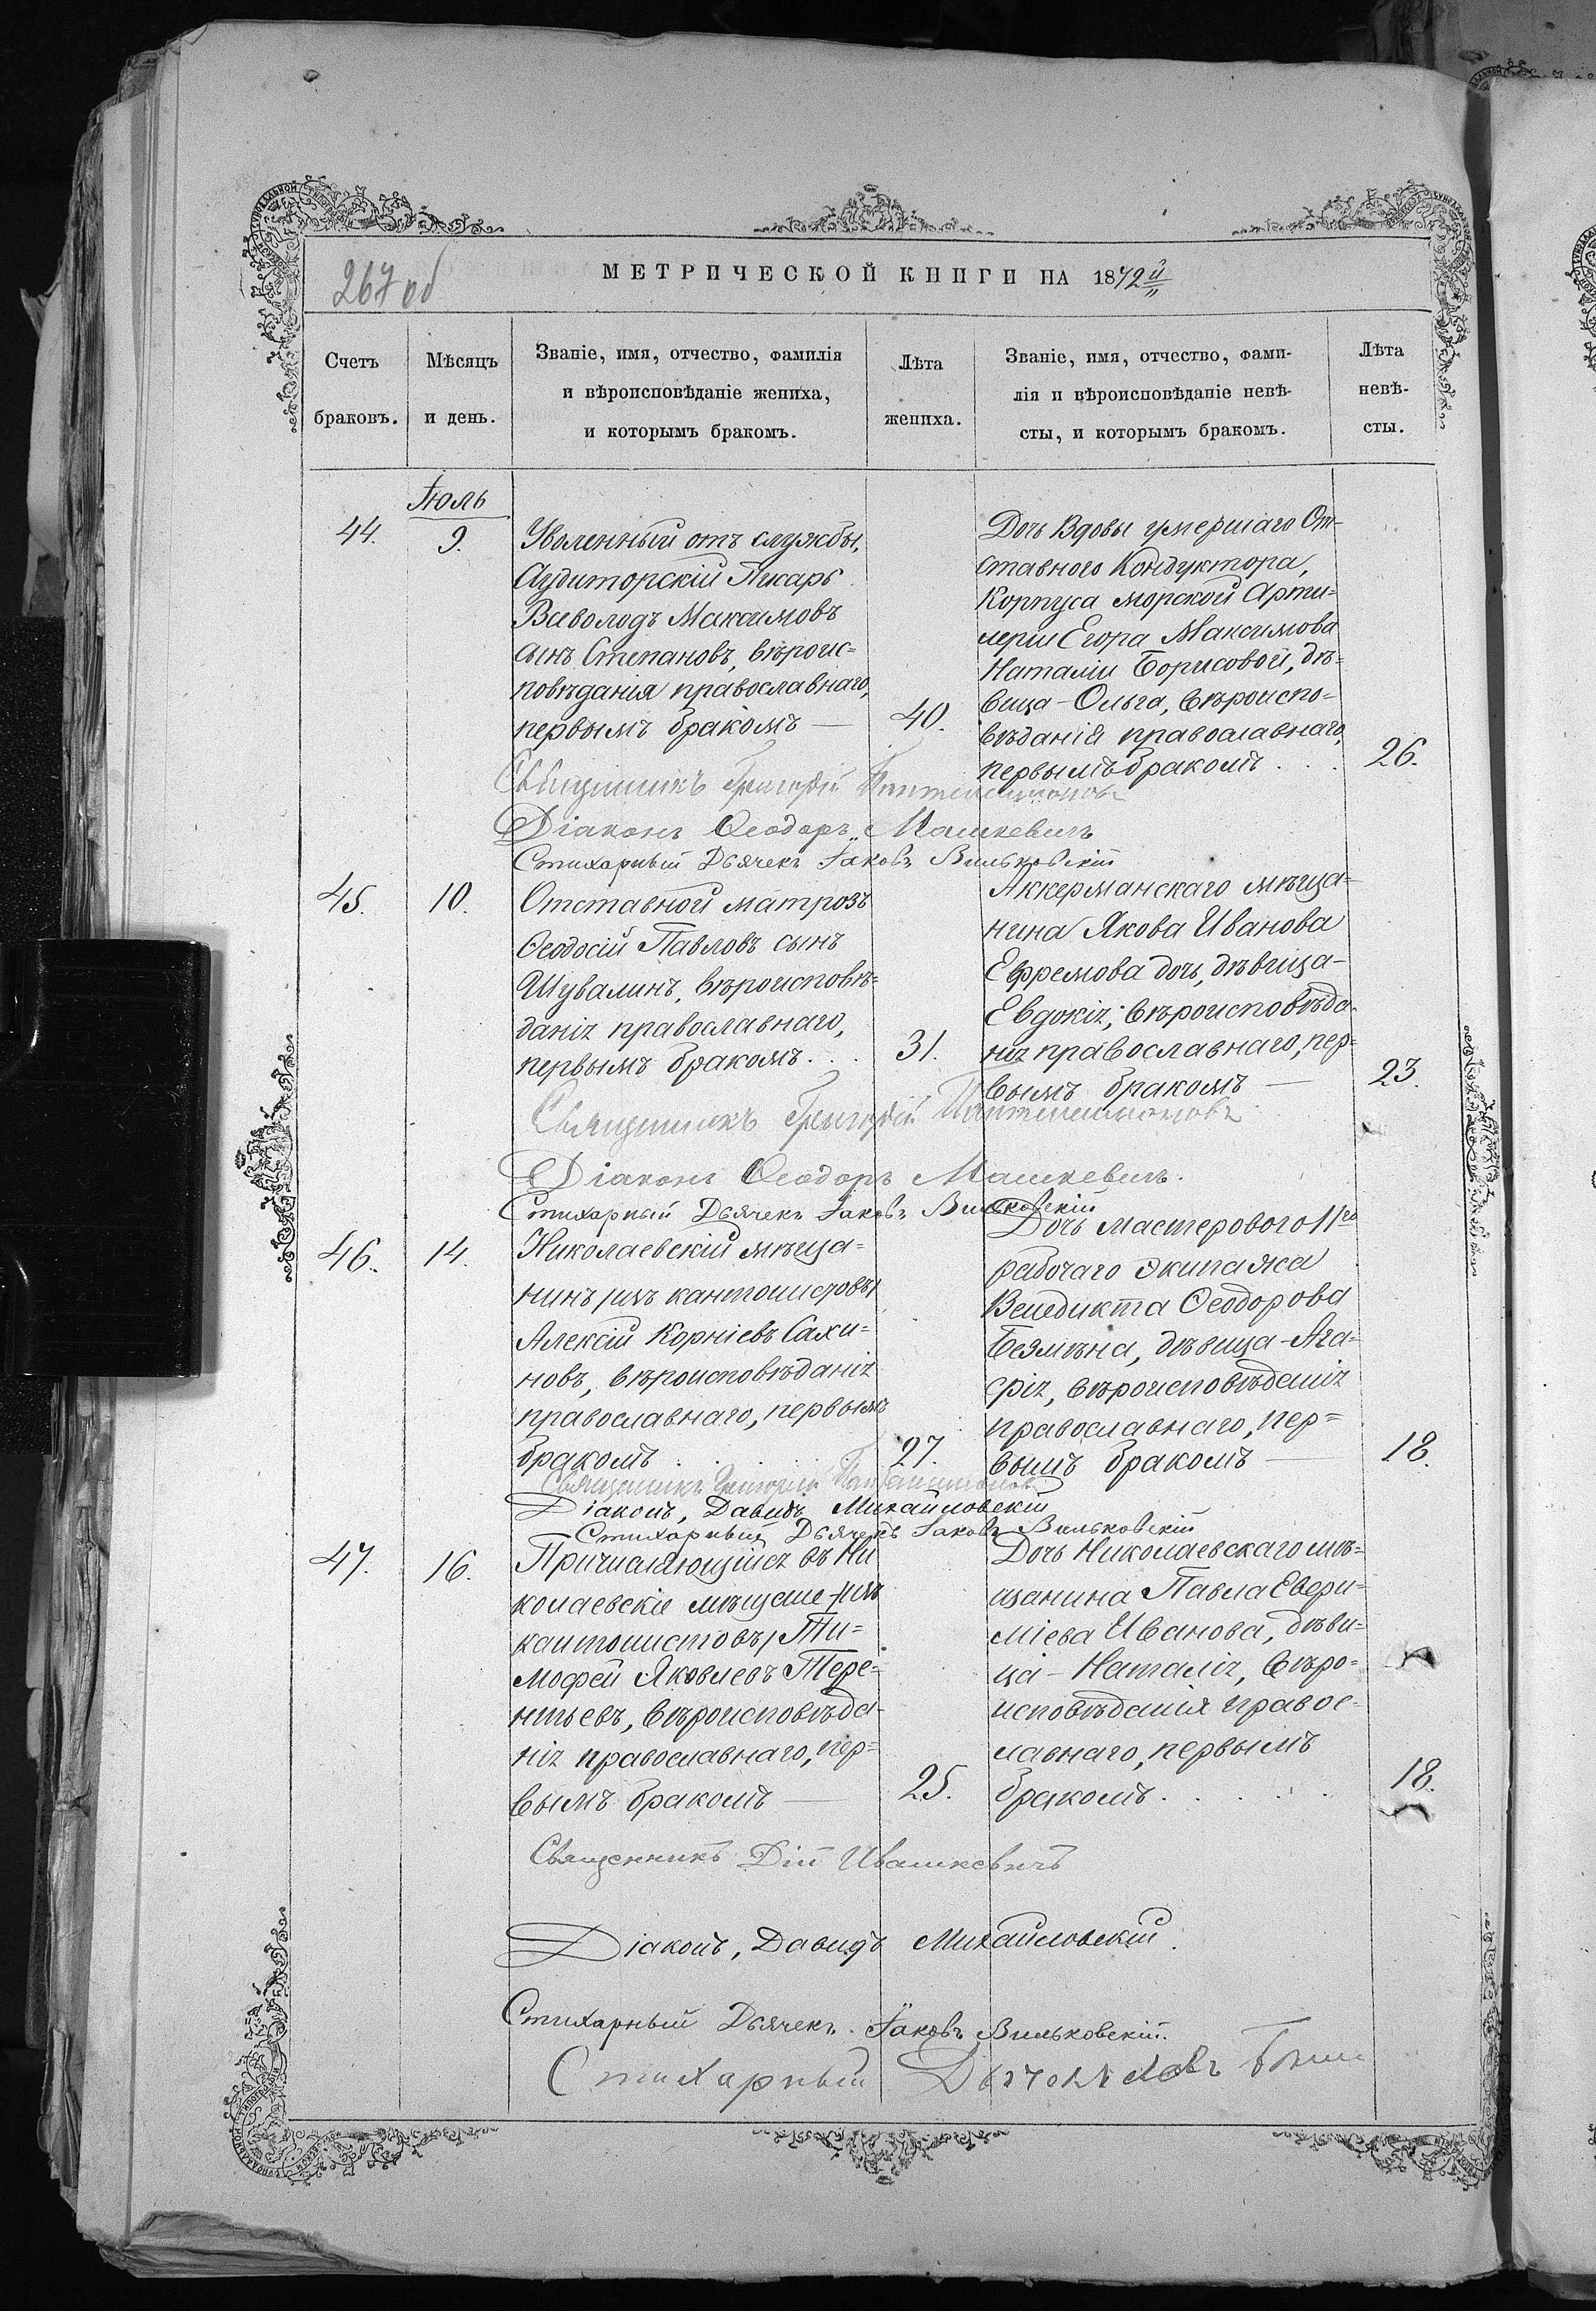 267 об
МЕТРИЧЕСКОЙ КНИГИ НА 1872й
Счетъ браковъ.
Мѣсяцъ и день.
Званіе, имя, отчество, фамилія
и вѣроисповѣданіе жениха,
и которымъ бракомъ.
Лѣта жениха.
Званіе, имя, отчество, фами-
лія и вѣроисповѣданіе невѣ-
сты, и которымъ бракомъ.
Лѣта невѣ-
сты.
Іюль
44.
9.
Уволенный отъ службы,
Аудиторскій Писарь
Всеволодъ Максимовъ
сынъ Степановъ, вѣроис=
повѣданія православнаго,
первымъ бракомъ —
40.
Дочь Вдовы умершаго От-
ставного Кондуктора,
Корпуса морской Арти=
леріи Егора Максимова
Наталіи Борисовой, дѣ=
вица - Ольга, вѣроиспо=
вѣданія православнаго,
первымъ бракомъ . . .
26.
Священникъ Григорій Пантелеимоновъ
Діаконъ Ѳеодоръ Машкевичъ
Стихарный Дьячекъ Іаковъ Вильковскій
45.
10.
Отставной матрозъ
Ѳеодосій Павловъ сынъ
Шувалинъ, вѣроисповѣ=
данія православнаго,
первымъ бракомъ. . .
31.
Аккерманскаго мѣща-
нина Якова Иванова
Ефремова дочь, дѣвица-
Евдокія, вѣроисповѣда-
нія православнаго, пер=
вымъ бракомъ —
23.
Священникъ Григорій Пантелеимоновъ
Діаконъ Ѳеодоръ Машкевичъ.
Стихарный Дьячекъ Іаковъ Вильковскій
46.
14.
Николаевскій мѣща=
нинъ /изъ кантонистовъ/
Алексій Корніевъ Сахи=
новъ, вѣроисповѣданія
православнаго, первымъ
бракомъ . . . . .
27.
Дочь мастерового 11го
рабочаго экипажа
Венедикта Ѳеодорова
Безмѣна, дѣвица - Ага=
фія, вѣроисповѣданія
православнаго, пер=
вымъ бракомъ —
18.
Священникъ Григорій Пантелеимоновъ
Діаконъ, Давидъ Михайловскій
Стихарный Дьячекъ Іаковъ Вильковскій
47.
16.
Причисляющійся въ Ни
колаевскіе мѣщане /изъ
кантонистовъ/ Ти=
мофей Яковлевъ Тере=
нтьевъ, вѣроисповѣда-
нія православнаго, пер=
вымъ бракомъ —
25.
Дочь Николаевскаго мѣ=
щанина Павла Евфи=
міева Иванова, дѣви=
ца - Наталія, вѣро=
исповѣданія правос-
лавнаго, первымъ
бракомъ. . . . . .
18.
Священникъ Дій Ивашкевичъ
Діаконъ, Давидъ Михайловскій.
Стихарный Дьячекъ. Іаковъ Вильковскій.
Стихарный